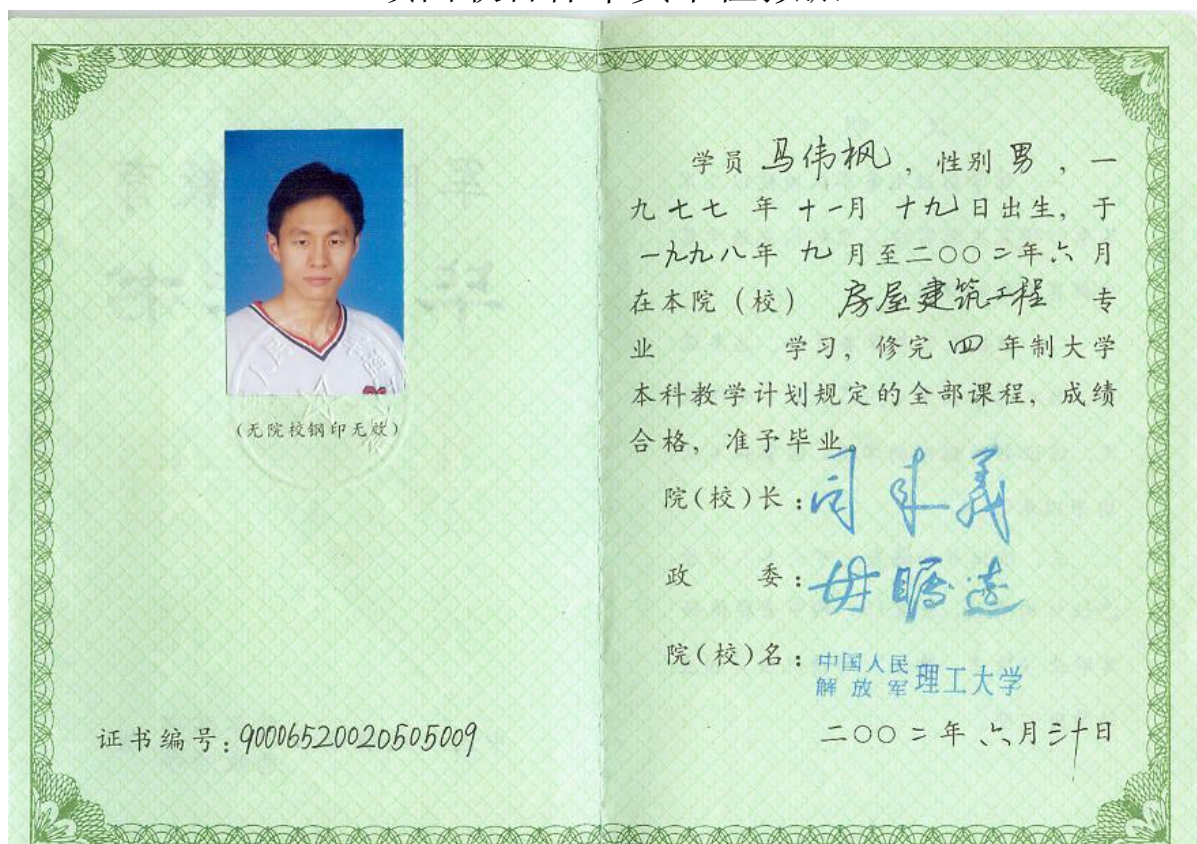 (无院校钢印无效)
证书编号：90006520020505009
学员 马伟枫，性别 男，一
九七七 年 十一月 十九日出生，于
一九九八年 九 月至二〇〇二年六 月
在本院（校） 房屋建筑工程 专
业 学习，修完 四 年制大学
本科教学计划规定的全部课程，成绩
合格，准予毕业。
院(校)长：
政 委：
院(校)名：中国人民解放军理工大学
二〇〇二年 六月三十日